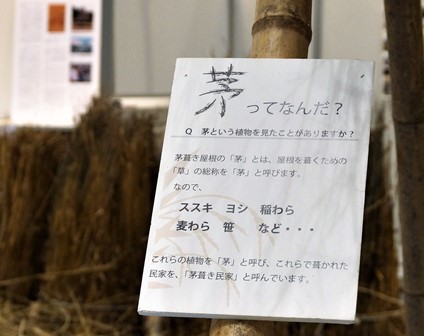 茅ってなんだ？
Q 茅という植物を見たことがありますか？
茅葺き屋根の「茅」とは、屋根を葺くための
「草」の総称を「茅」と呼びます。
なので、
ススキ ヨシ 稲わら
麦わら 笹 など・・・
これらの植物を「茅」と呼び、これらで葺かれた
民家を、「茅葺き民家」と呼んでいます。